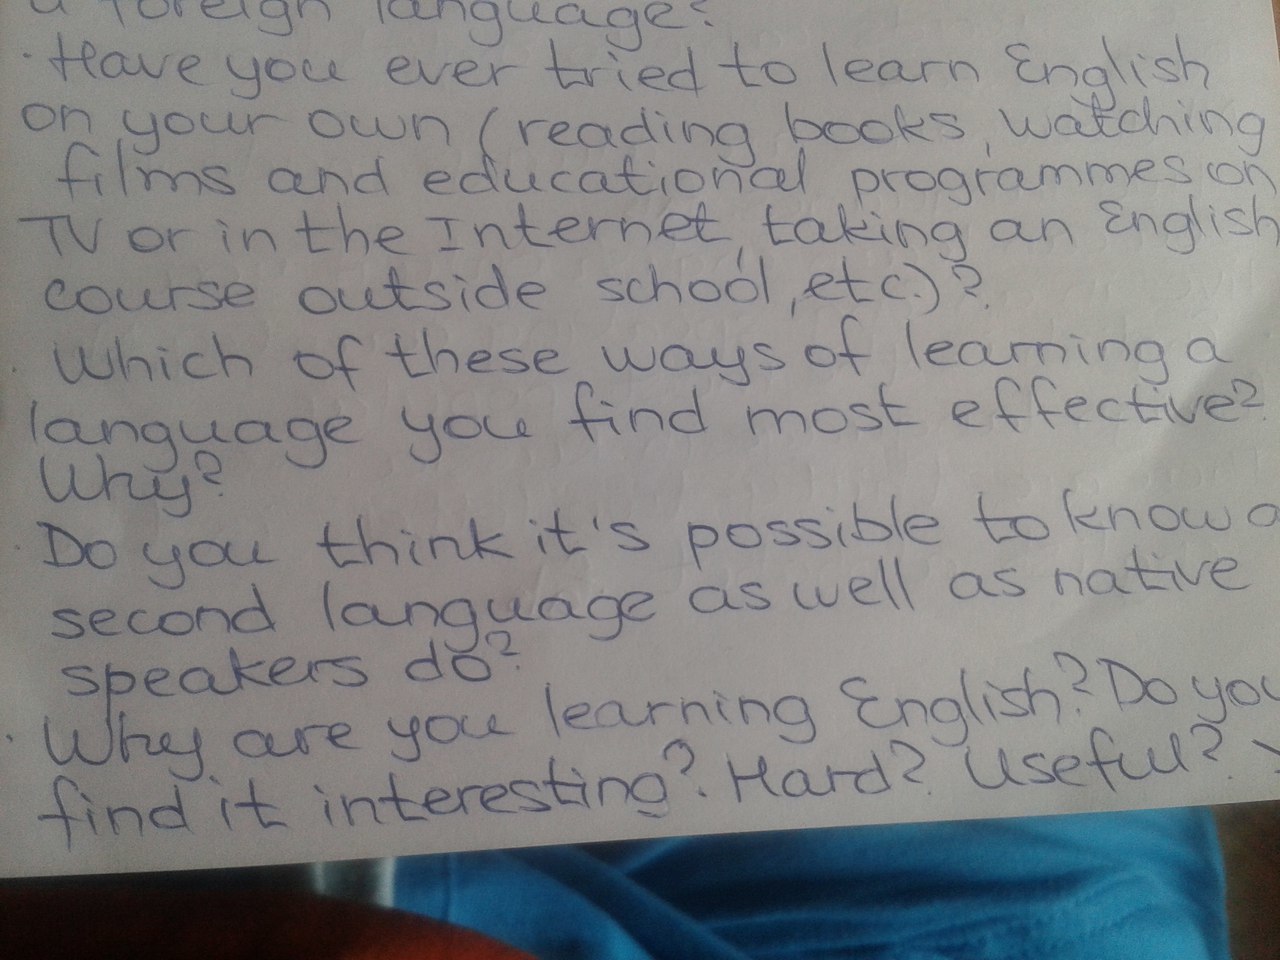 a foreign language?
· Have you ever tried to learn English
on your own (reading books, watching
films and educational programmes on
TV or in the Internet, taking an English
course outside school, etc.)?
· Which of these ways of learning a
language you find most effective?
Why?
· Do you think it's possible to know a
second language as well as native
speakers do?
· Why are you learning English? Do you
find it interesting? Hard? Useful?